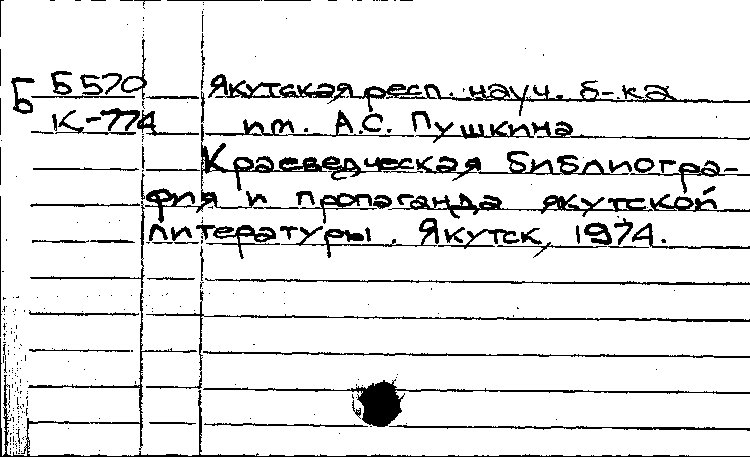 Б Б570 Якутская респ. науч. б-ка
К-774 им. А.С. Пушкина
Краеведческая библиогра-
фия и пропаганда якутской
литературы. Якутск, 1974.